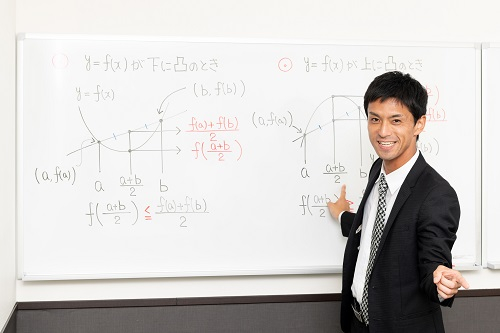 y=f(x)が下に凸のとき
y=f(x)
(b, f(b))
f(a)+f(b)/2
f(a+b/2)
(a, f(a))
a
a+b/2
b
f(a+b/2) ≦ f(a)+f(b)/2
y=f(x)が上に凸のとき
(a, f(a))
a
a+b/2
f(a+b/2)